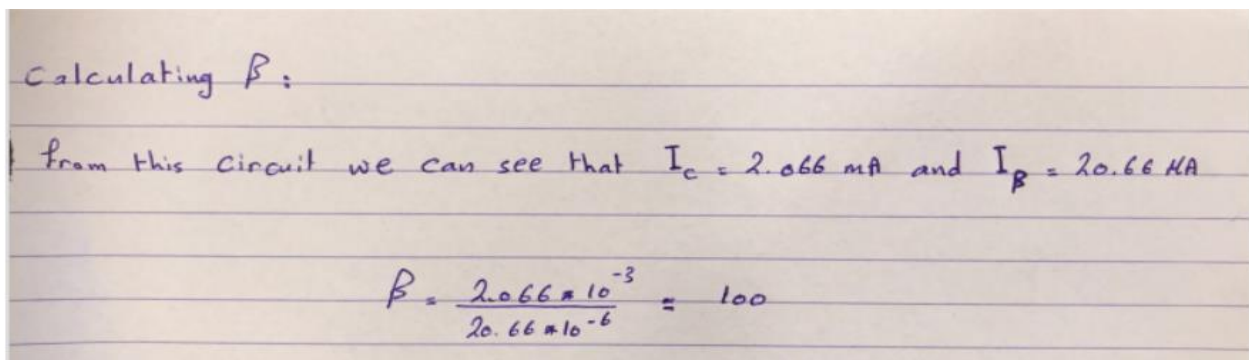 Calculating β:
from this circuit we can see that I_c = 2.066 mA and I_β = 20.66 μA
β = 2.066 * 10^-3 / 20.66 * 10^-6 = 100